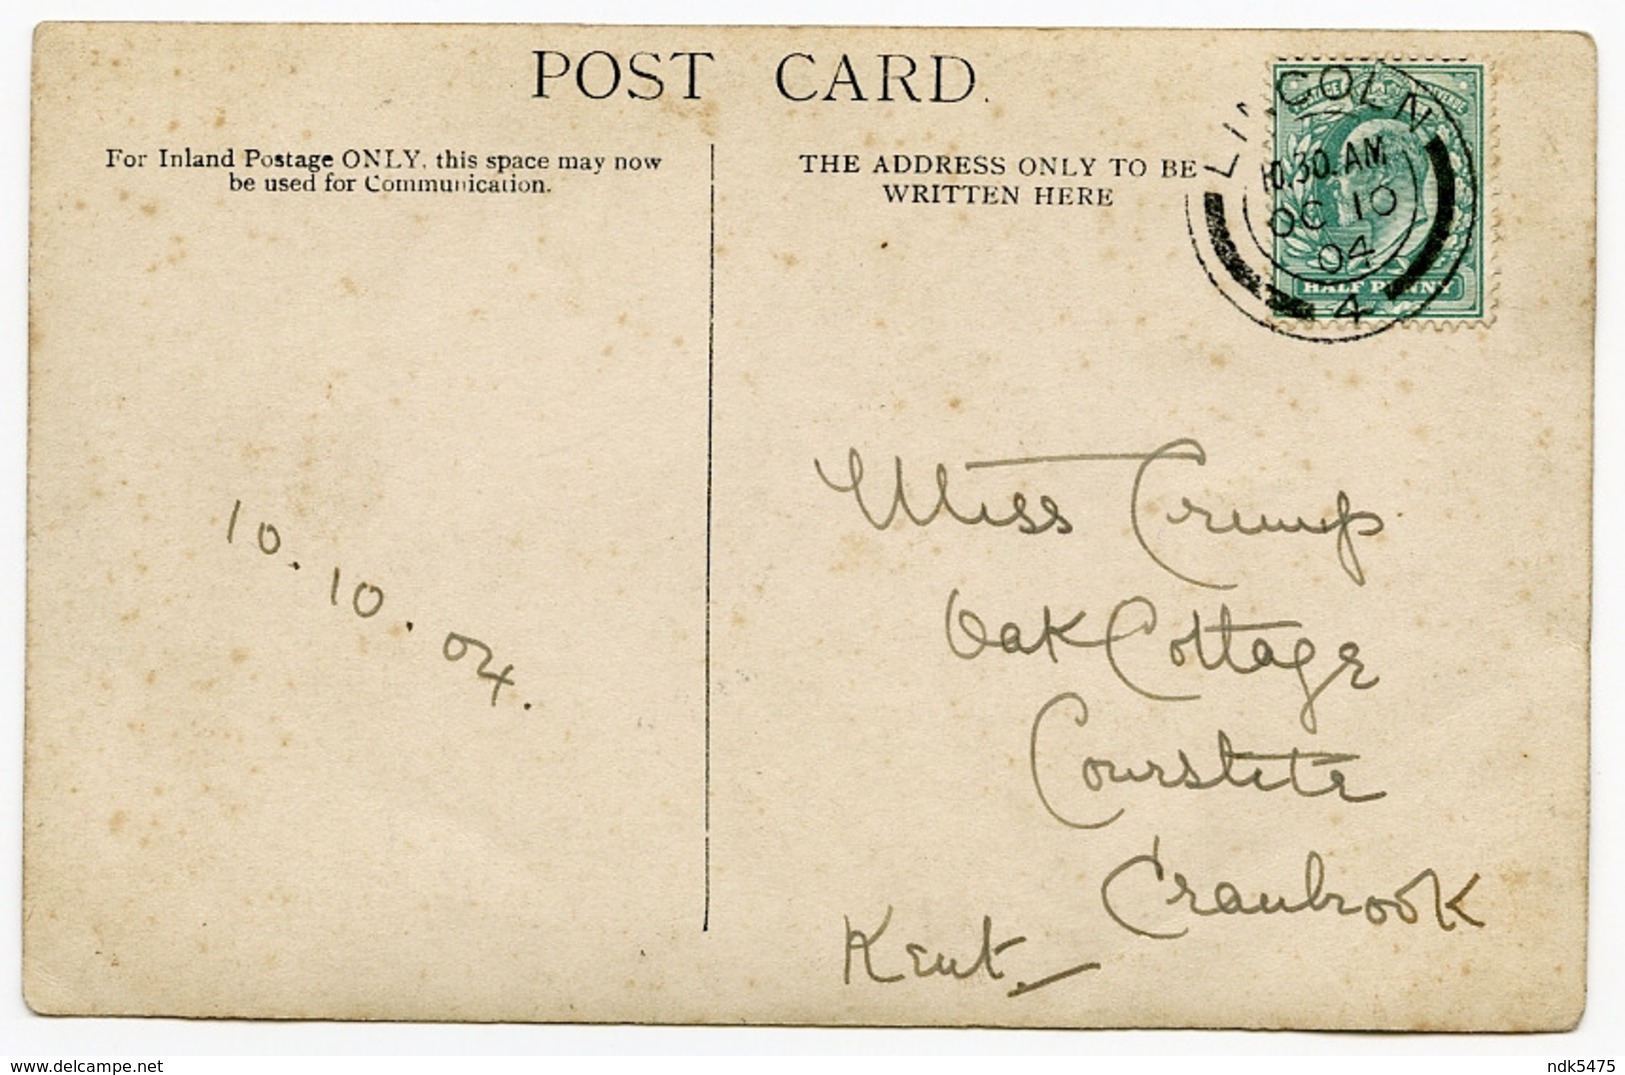 POST CARD.
For Inland Postage ONLY, this space may now
be used for Communication.
THE ADDRESS ONLY TO BE
WRITTEN HERE
LINCOLN
10.30. AM
OC 10
04
4
HALF PENNY
10.10.04.
Miss Crump
Oak Cottage
Courstite
Cranbrook
Kent.
© delcampe.net
ndk5475